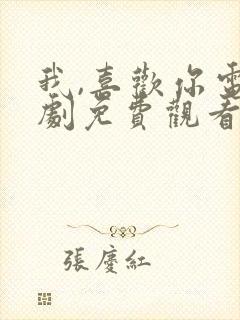 我,喜歡你電
劇免費觀看
張慶紅